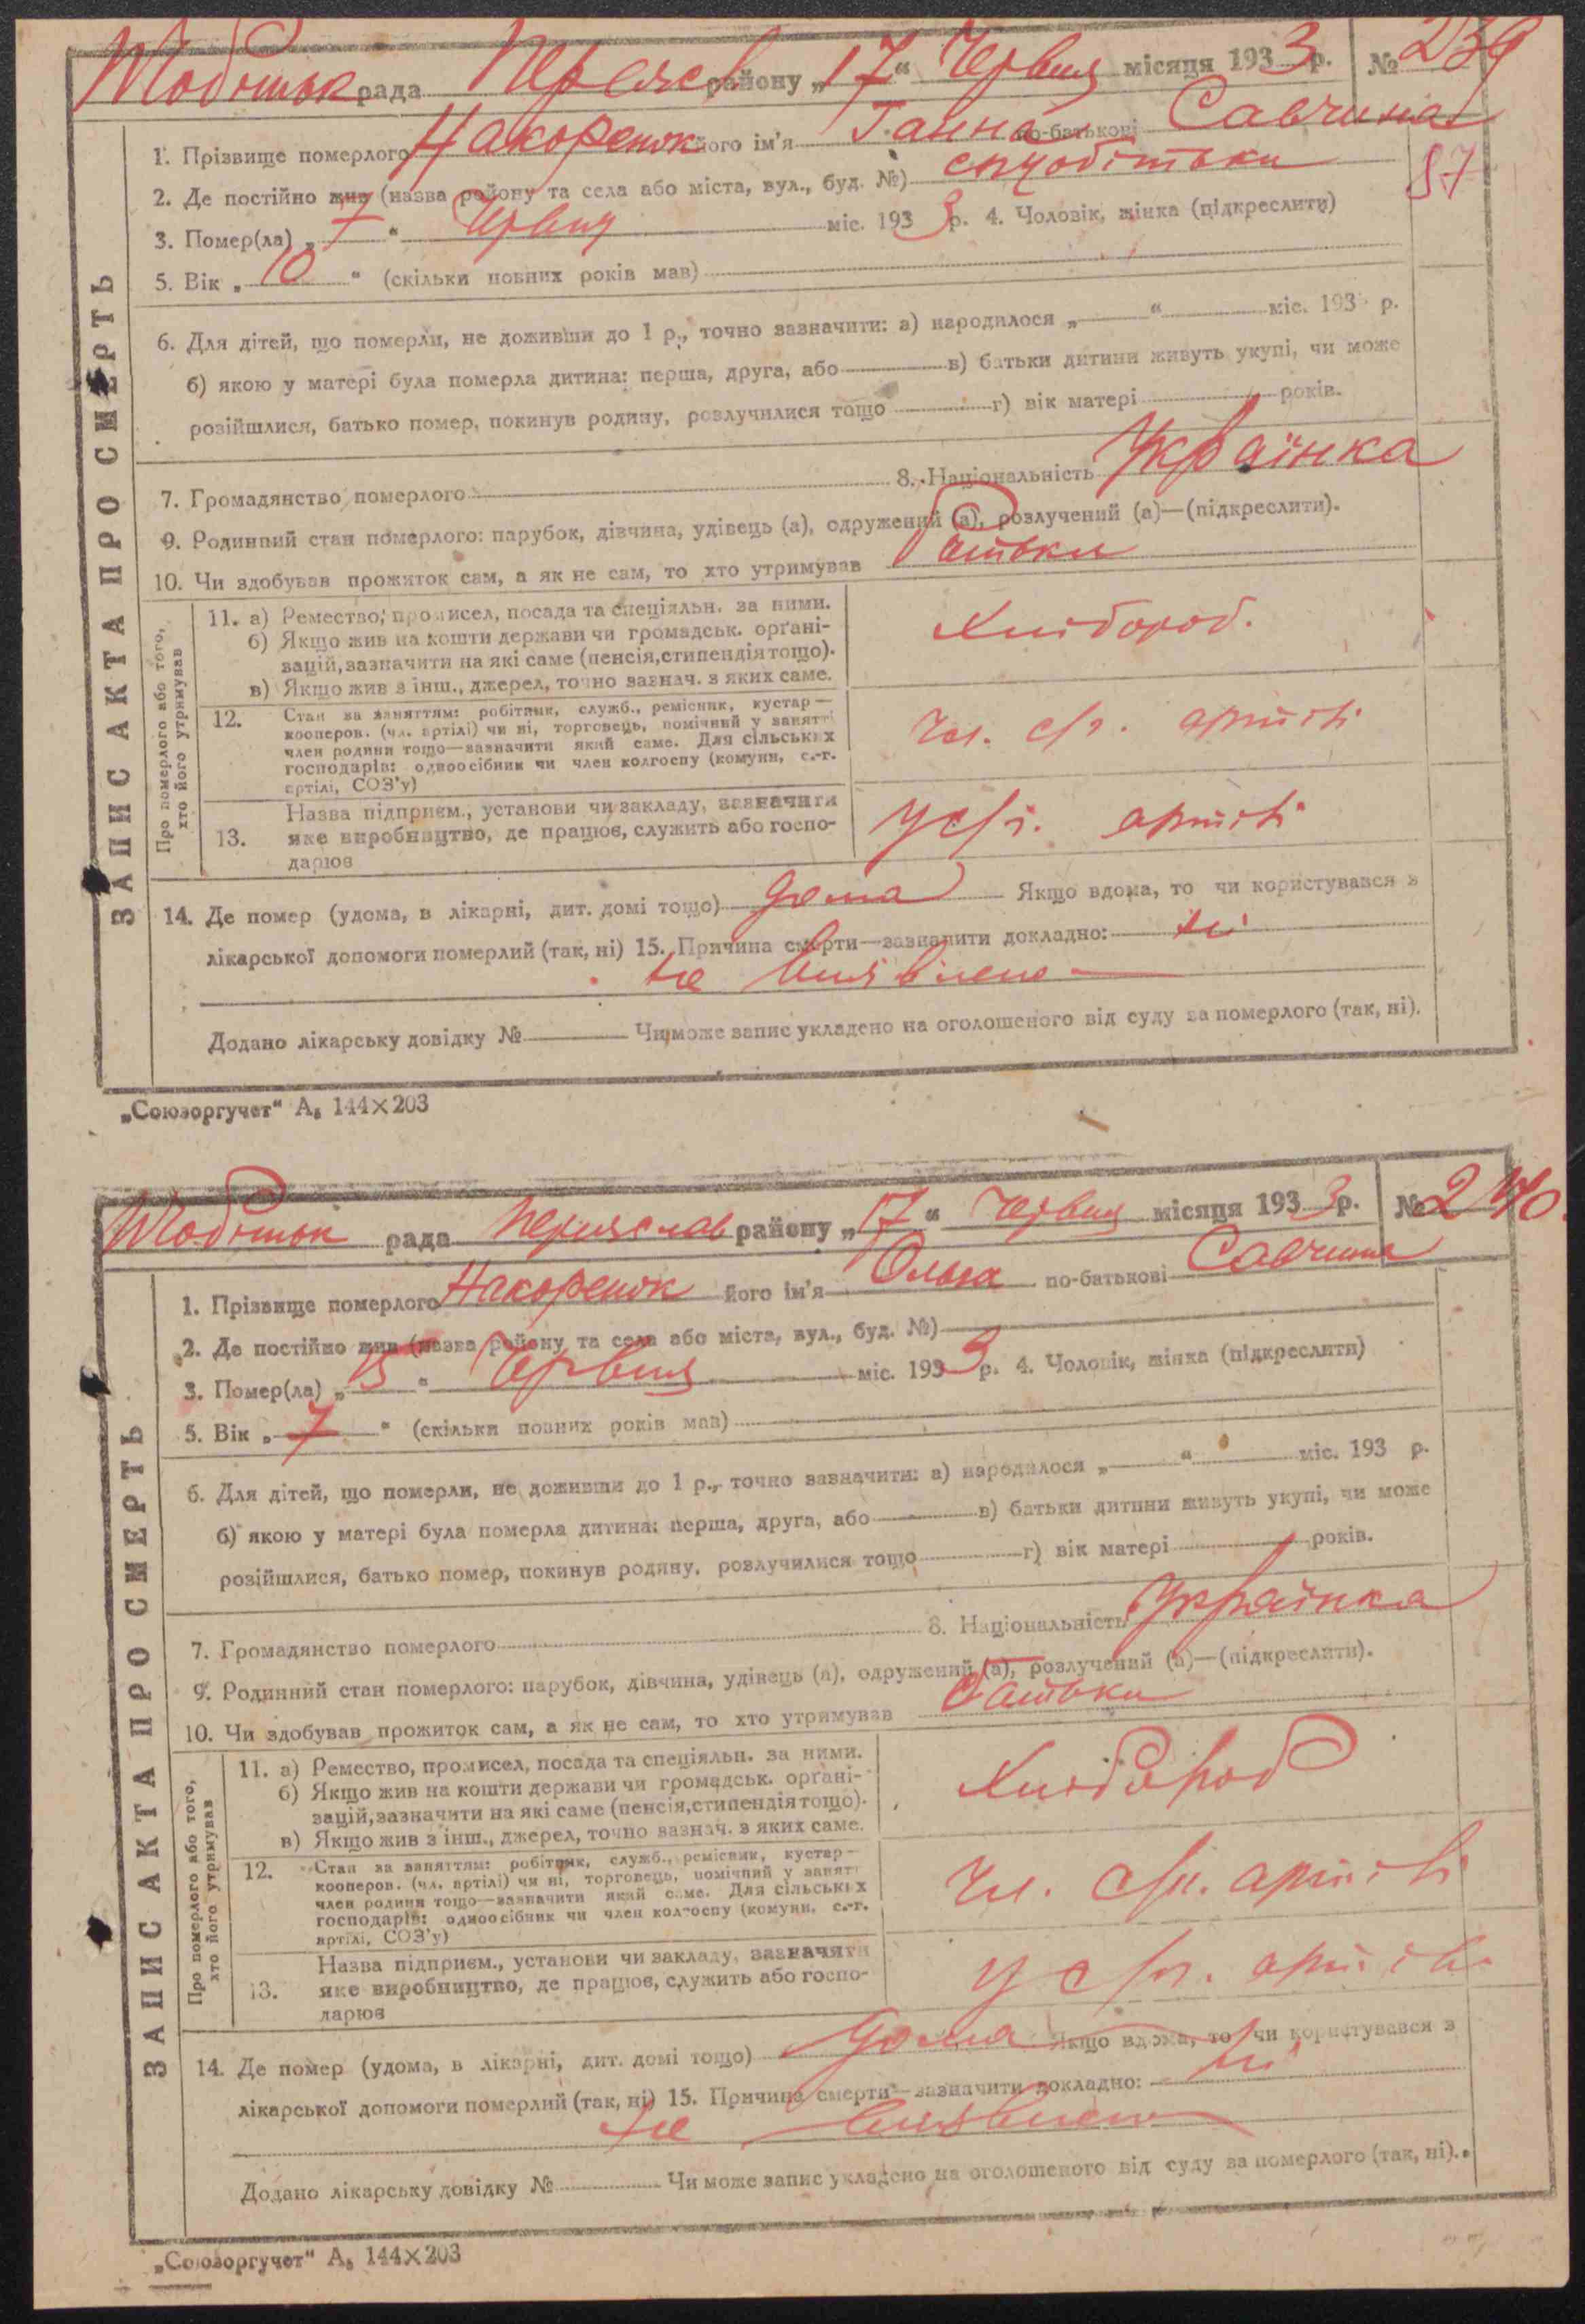 рада Переясл району „17“ Червня місяця 1933 р. № 239
1. Прізвище померлого Накоренок його ім'я Ганна по-батькові Савчина
57
2. Де постійно жив (назва району та села або міста, вул., буд. №)
3. Помер(ла) „7“ Червня міс. 1933 р. 4. Чоловік, жінка (підкреслити)
5. Вік „10“ (скільки повних років мав)
6. Для дітей, що померли, не доживши до 1 р., точно зазначити: а) народилося „ “ міс. 193 р.
б) якою у матері була померла дитина: перша, друга, або в) батьки дитини живуть укупі, чи може
розійшлися, батько помер, покинув родину, розлучилися тощо г) вік матері років.
7. Громадянство померлого 8. Національність Українка
9. Родинний стан померлого: парубок, дівчина, удівець (а), одружений (а), розлучений (а)—(підкреслити).
10. Чи здобував прожиток сам, а як не сам, то хто утримував батьки
ЗАПИС АКТА ПРО СМЕРТЬ
Про померлого або того,
хто його утримував
11. а) Ремество, промисел, посада та спеціяльн. за ними.
б) Якщо жив на кошти держави чи громадськ. орґані-
зацій, зазначити на які саме (пенсія, стипендія тощо).
в) Якщо жив з інш., джерел, точно зазнач. з яких саме.
Хлібороб.
12. Стан за заняттям: робітник, служб., ремісник, кустар—
кооперов. (чл. артілі) чи ні, торговець, помічний у занятті
член родини тощо—зазначити який саме. Для сільських
господарів: одноосібник чи член колгоспу (комуни, с.-г.
артілі, СОЗ'у)
Чл. с/г. артілі
13. Назва підприєм., установи чи закладу, зазначити
яке виробництво, де працює, служить або госпо-
дарює
У с/г. артілі
14. Де помер (удома, в лікарні, дит. домі тощо) дома Якщо вдома, то чи користувався з
лікарської допомоги померлий (так, ні) 15. Причина смерти—зазначити докладно: ні
не виявлено
Додано лікарську довідку № Чи може запис укладено на оголошеного від суду за померлого (так, ні).
„Союзоргучет“ А₅ 144×203
рада Переяслав району „17“ Червня місяця 1933 р. № 240
1. Прізвище померлого Накоренок його ім'я Ольга по-батькові Савчина
2. Де постійно жив (назва району та села або міста, вул., буд. №)
3. Помер(ла) „15“ Червня міс. 1933 р. 4. Чоловік, жінка (підкреслити)
5. Вік „7“ (скільки повних років мав)
6. Для дітей, що померли, не доживши до 1 р., точно зазначити: а) народилося „ “ міс. 193 р.
б) якою у матері була померла дитина: перша, друга, або в) батьки дитини живуть укупі, чи може
розійшлися, батько помер, покинув родину, розлучилися тощо г) вік матері років.
7. Громадянство померлого 8. Національність Українка
9. Родинний стан померлого: парубок, дівчина, удівець (а), одружений (а), розлучений (а)—(підкреслити).
10. Чи здобував прожиток сам, а як не сам, то хто утримував батьки
ЗАПИС АКТА ПРО СМЕРТЬ
Про померлого або того,
хто його утримував
11. а) Ремество, промисел, посада та спеціяльн. за ними.
б) Якщо жив на кошти держави чи громадськ. орґані-
зацій, зазначити на які саме (пенсія, стипендія тощо).
в) Якщо жив з інш., джерел, точно зазнач. з яких саме.
Хлібороб
12. Стан за заняттям: робітник, служб., ремісник, кустар—
кооперов. (чл. артілі) чи ні, торговець, помічний у занятт
член родини тощо—зазначити який саме. Для сільських
господарів: одноосібник чи член колгоспу (комуни, с.-г.
артілі, СОЗ'у)
Чл. с/г. артілі
13. Назва підприєм., установи чи закладу, зазначити
яке виробництво, де працює, служить або госпо-
дарює
У с/г. артілі
14. Де помер (удома, в лікарні, дит. домі тощо) дома Якщо вдома, то чи користувався з
лікарської допомоги померлий (так, ні) 15. Причина смерти—зазначити докладно: ні
не виявлено
Додано лікарську довідку № Чи може запис укладено на оголошеного від суду за померлого (так, ні).
„Союзоргучет“ А₅ 144×203